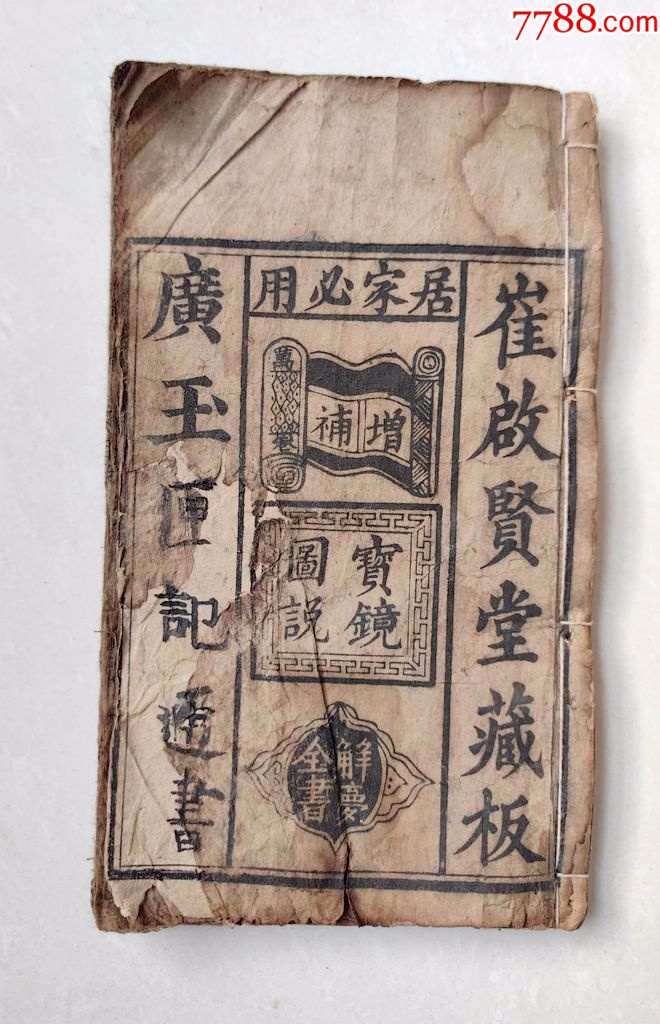 7788.com
崔啟賢堂藏板
居家必用
萬卷
增補
寶鏡
圖説
解夢
全書
廣玉匣記通書